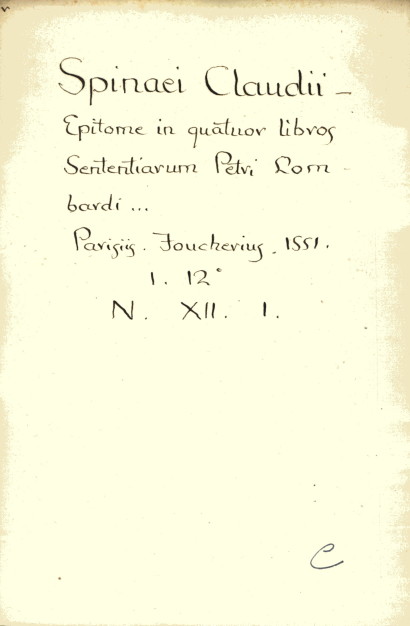 Spinaei Claudii –
Epitome in quatuor libros
Sententiarum Petri Lom-
bardi ...
Parisiis. Foucherius. 1551.
1. 12°
N. XII. 1.
C